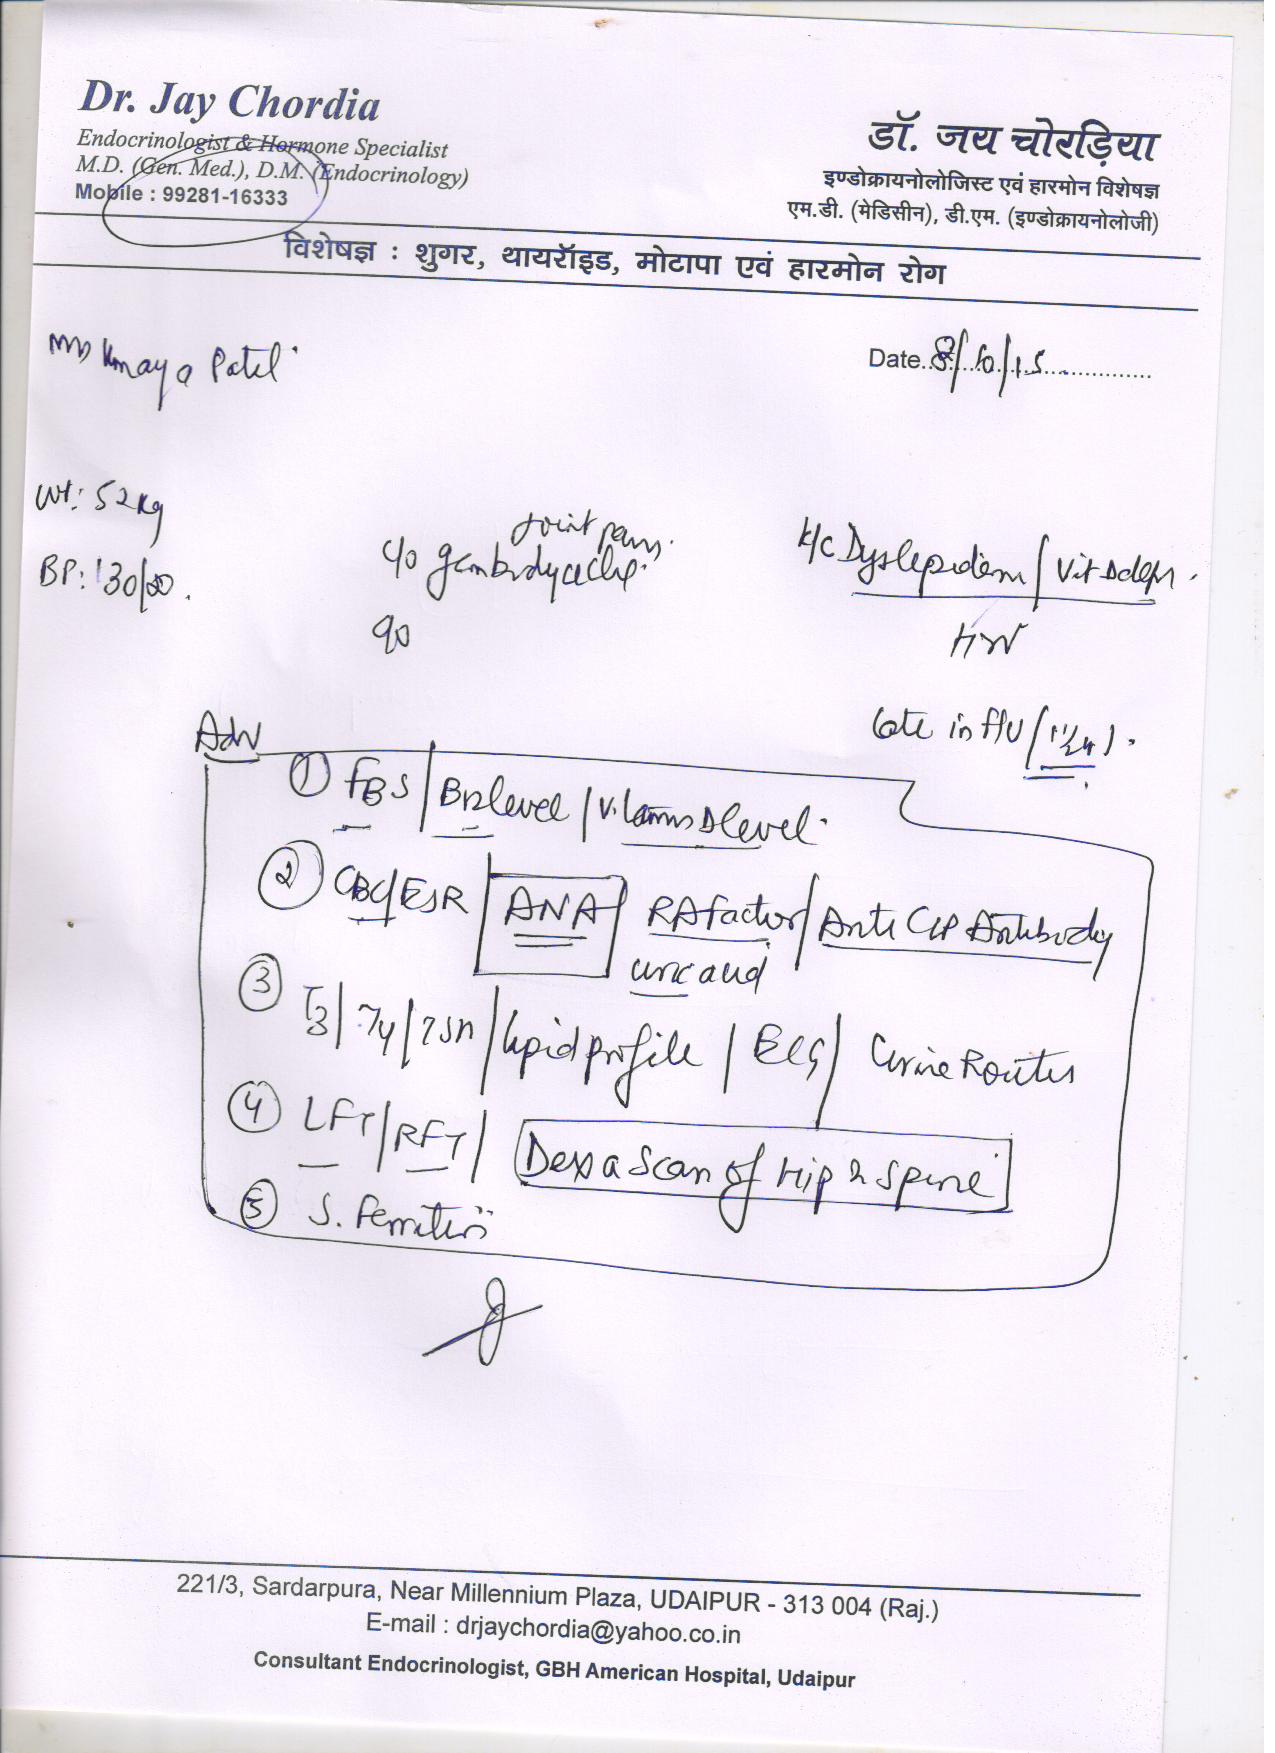 Dr. Jay Chordia
Endocrinologist & Hormone Specialist
M.D. (Gen. Med.), D.M. (Endocrinology)
Mobile : 99281-16333
डॉ. जय चोरड़िया
इण्डोक्रायनोलोजिस्ट एवं हारमोन विशेषज्ञ
एम.डी. (मेडिसीन), डी.एम. (इण्डोक्रायनोलोजी)
विशेषज्ञ : शुगर, थायरॉइड, मोटापा एवं हारमोन रोग
Patel
Date 8/10/15
Wt: 52kg
BP: 130/
Joint pain
c/o gen bodyache
K/c Dyslipidem / Vit D defn
late in f/u / (1 1/2 y)
Adv
① FBS / B12 level / Vitamin D level
② CBC/ESR / ANA / RA factor / Anti CCP Antibody
uric acid
③ T3 / T4 / TSH / lipid profile / ECG / Urine Routine
④ LFT / RFT / Dexa Scan of Hip & Spine
⑤ S. Ferritin
221/3, Sardarpura, Near Millennium Plaza, UDAIPUR - 313 004 (Raj.)
E-mail : drjaychordia@yahoo.co.in
Consultant Endocrinologist, GBH American Hospital, Udaipur